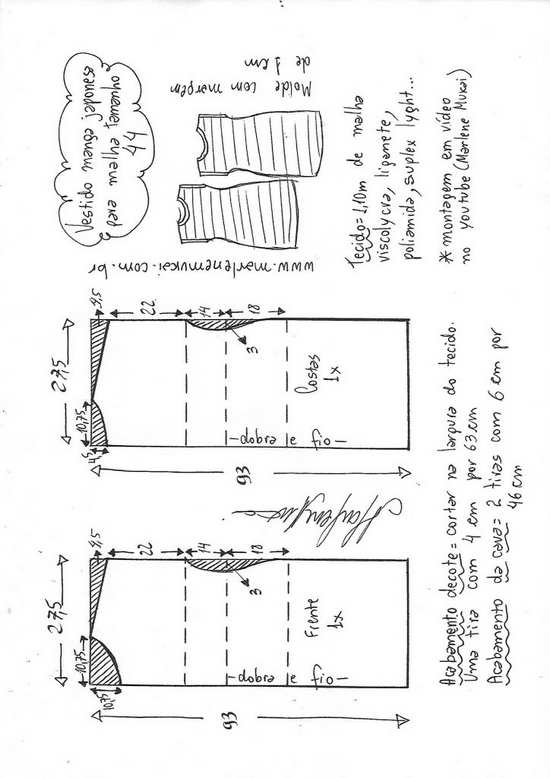 Vestido manga japonesa
para malha tamanho
44
Molde com margem
de 1 cm
www.marlenemukai.com.br
Tecido= 1,10m de malha
viscolycra, liganete,
poliamida, suplex lyght...
* montagem em vídeo
no youtube (Marlene Mukai)
27,5
10,75
10,75
22
14
18
3
Frente
1x
fio e dobra
93
27,5
10,75
4,5
22
14
18
3
Costas
1x
fio e dobra
93
Acabamento decote= cortar na largura do tecido.
Uma tira com 4 cm por 63 cm
Acabamento da cava= 2 tiras com 6 cm por
46 cm